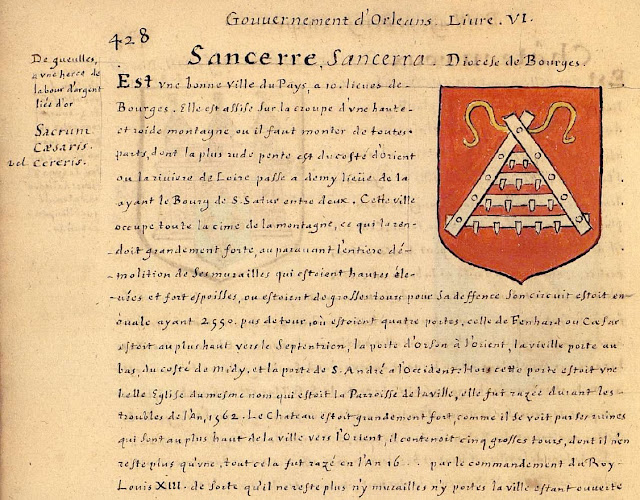 Gouvernement d'Orleans. Livre. VI.
428
Sancerre, Sancerra. Diocèse de Bourges.
De gueulles,
a une herce de
labour d'argent
liée d'or
Sacrum
Cæsaris.
vel Cereris.
Est vne bonne ville du Pays, a 10. lieues de
Bourges. Elle est assise sur la croupe d'vne haute
et roide montagne ou il faut monter de toutes
parts, dont la plus rude pente est du costé d'Orient
ou la riviere de Loire passe a demy lieüe de la
ayant le Bourg de S. Satur entre deux. Cette ville
occupe toute la cime de la montagne, ce qui la ren-
doit grandement forte, auparauant l'entiere dé-
molition de ses murailles qui estoient hautes éle-
uées et fort espoisses, ou estoient de grosses tours pour sa deffence son circuit estoit en
ouale ayant 2550. pas de tour, où estoient quatre portes, celle de Fenhard ou Cæsar
estoit au plus haut vers le Septentrion, la porte d'Orson à l'orient, la vieille porte au
bas, du costé de Midy, et la porte de S. André a l'Occident. Hors cette porte estoit vne
belle Eglise du mesme nom qui estoit la Parroisse de la ville, elle fut razée durant les
troubles de l'An, 1562. Le Chateau estoit grandement fort, comme il se voit par ses ruines
qui sont au plus haut de la ville vers l'Orient, il contenoit cinq grosses tours, dont il n'en
reste plus qu'vne, tout cela fut razé en l'An 16... par le commandement du Roy
Louis XIII. de sorte qu'il ne reste plus n'y murailles n'y portes la ville estant ouverte